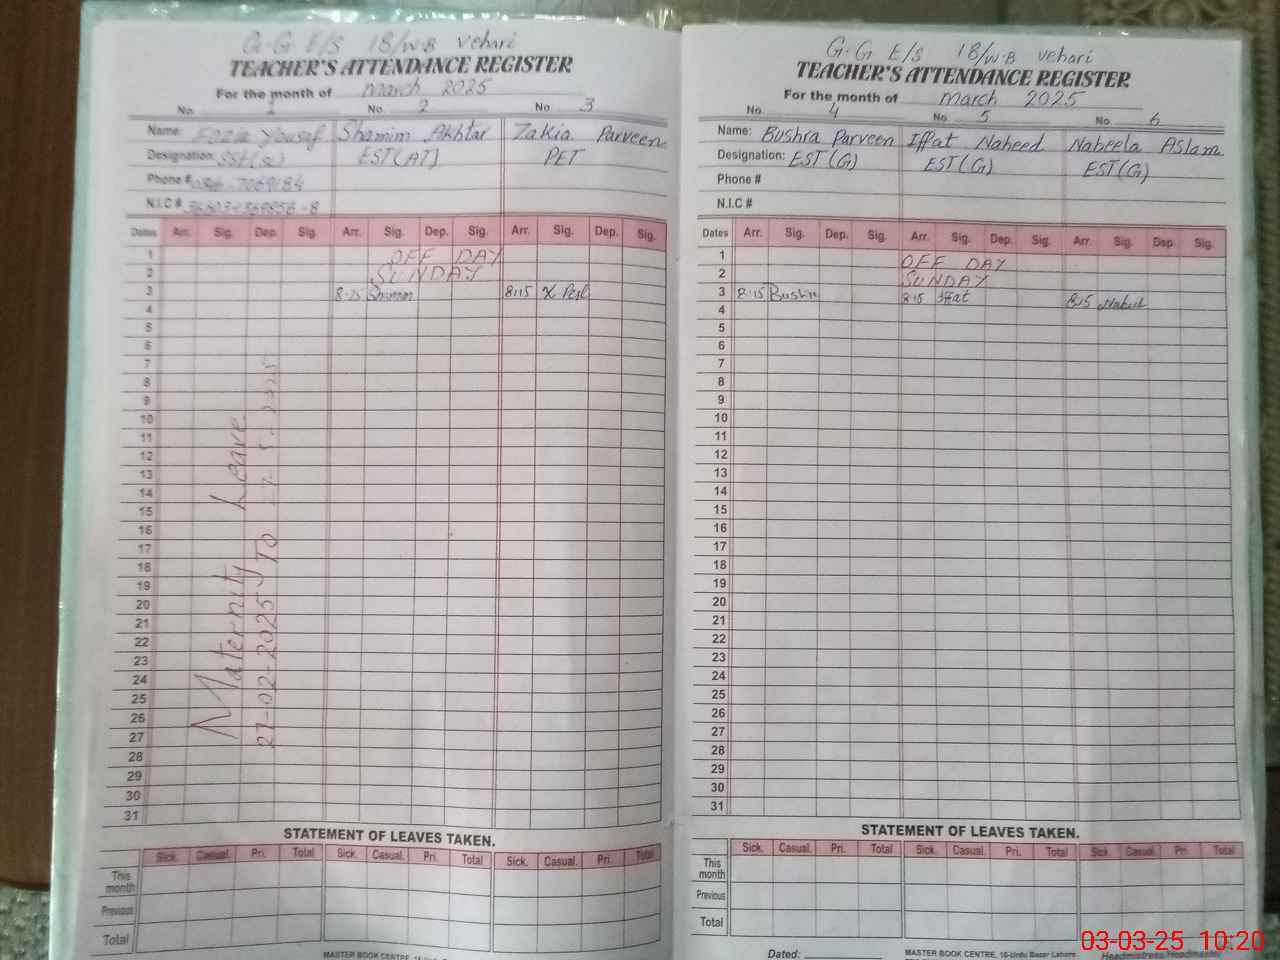 G.G E/S 18/W.B Vehari
TEACHER'S ATTENDANCE REGISTER
For the month of March 2025
No. 1 No. 2 No 3
Name: Fozia Yousaf Shamim Akhtar Zakia Parveen
Designation: SSt(sc) EST(AT) PET
Phone #
N.I.C #
Dates Arr. Sig. Dep. Sig. Arr. Sig. Dep. Sig. Arr. Sig. Dep. Sig.
1 OFF DAY
2 SUNDAY
3 8:15 Shamim 8:15
4
5
6
7
8
9
10
11
12
13
14
15
16
17
18
19
20
21
22
23
24
25
26
27
28
29
30
31
Maternity Leave
27-02-2025 To
STATEMENT OF LEAVES TAKEN.
Sick. Casual. Pri. Total Sick. Casual. Pri. Total Sick. Casual. Pri. Total
This month
Previous
Total
MASTER BOOK CENTRE, 16-Urdu
G.G E/S 18/W.B Vehari
TEACHER'S ATTENDANCE REGISTER
For the month of March 2025
No. 4 No. 5 No. 6
Name: Bushra Parveen Iffat Naheed Nabeela Aslam
Designation: EST(G) EST(G) EST(G)
Phone #
N.I.C #
Dates Arr. Sig. Dep. Sig. Arr. Sig. Dep. Sig. Arr. Sig. Dep. Sig.
1 OFF DAY
2 SUNDAY
3 8:15 Bushra 8:15 Iffat 8:15
4
5
6
7
8
9
10
11
12
13
14
15
16
17
18
19
20
21
22
23
24
25
26
27
28
29
30
31
STATEMENT OF LEAVES TAKEN.
Sick. Casual. Pri. Total Sick. Casual. Pri. Total Sick. Casual. Pri Total
This month
Previous
Total
Dated: MASTER BOOK CENTRE, 16-Urdu Bazar Lahore Headmistress/Headmaster
03-03-25 10:20